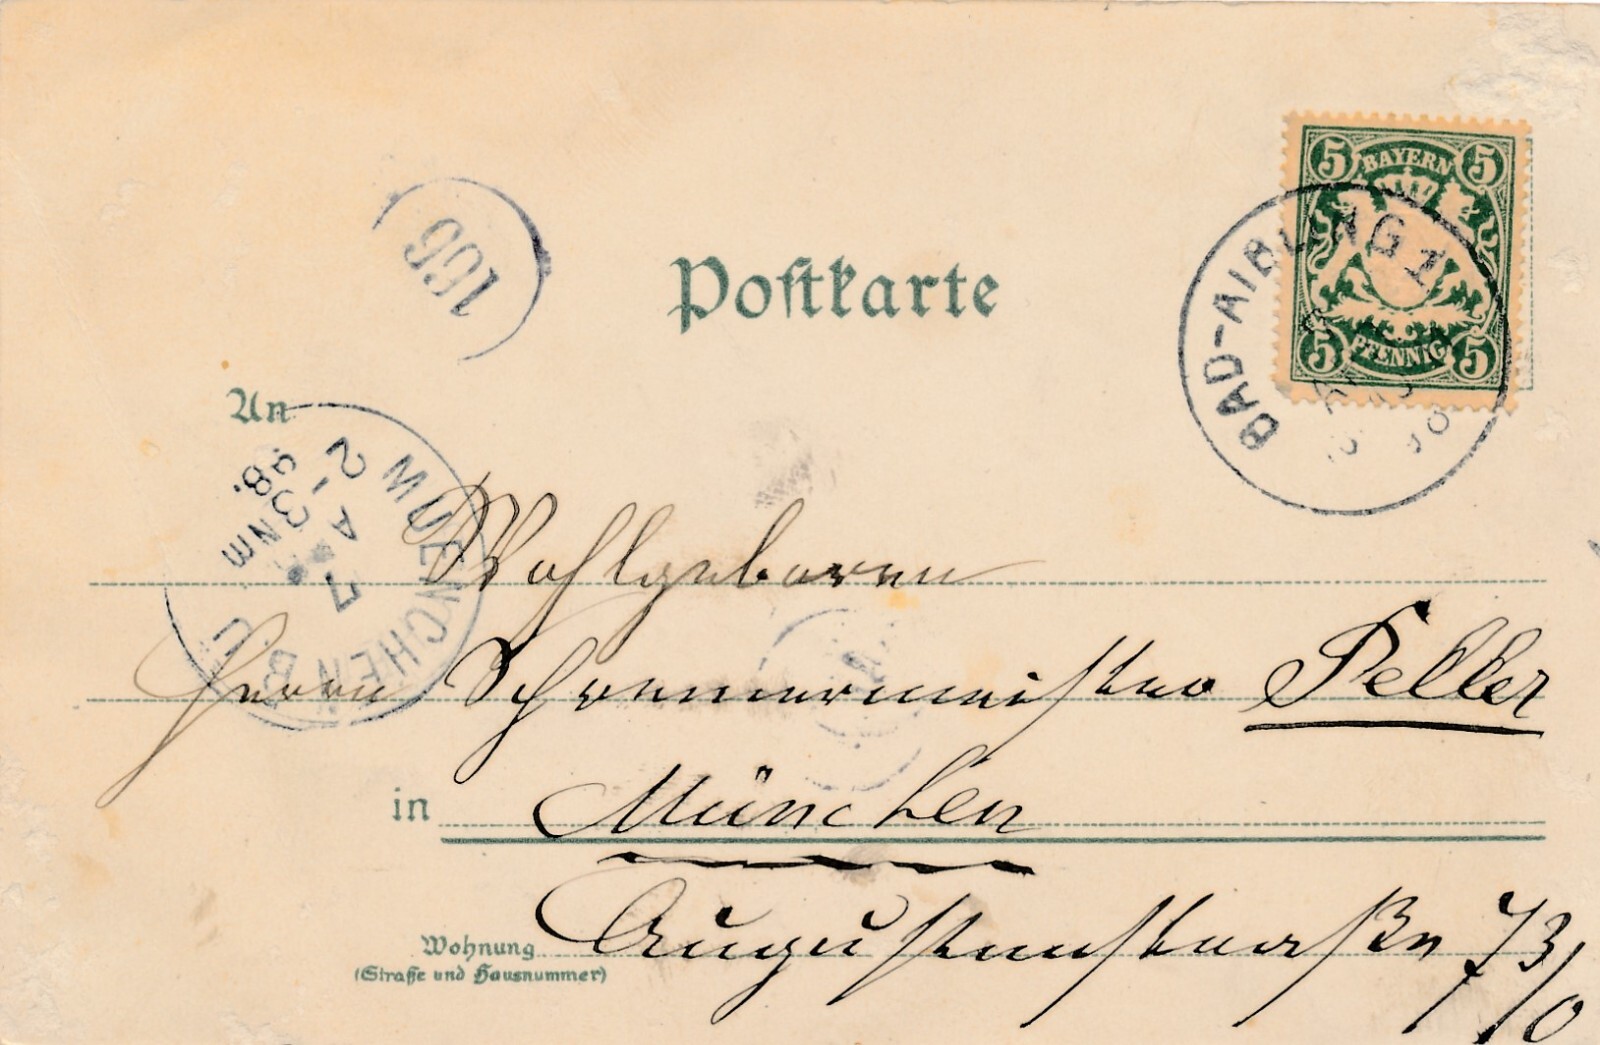 5 BAYERN 5
5 PFENNIG 5
BAD-AIBLING 1
166
Postkarte
An
MUENCHEN B.U.
2
A
7
3
NM
98.
Wohlgeboren
Herrn Schreinermeister Peller
in München
Wohnung Augustenstraße 73/0
(Straße und Hausnummer)